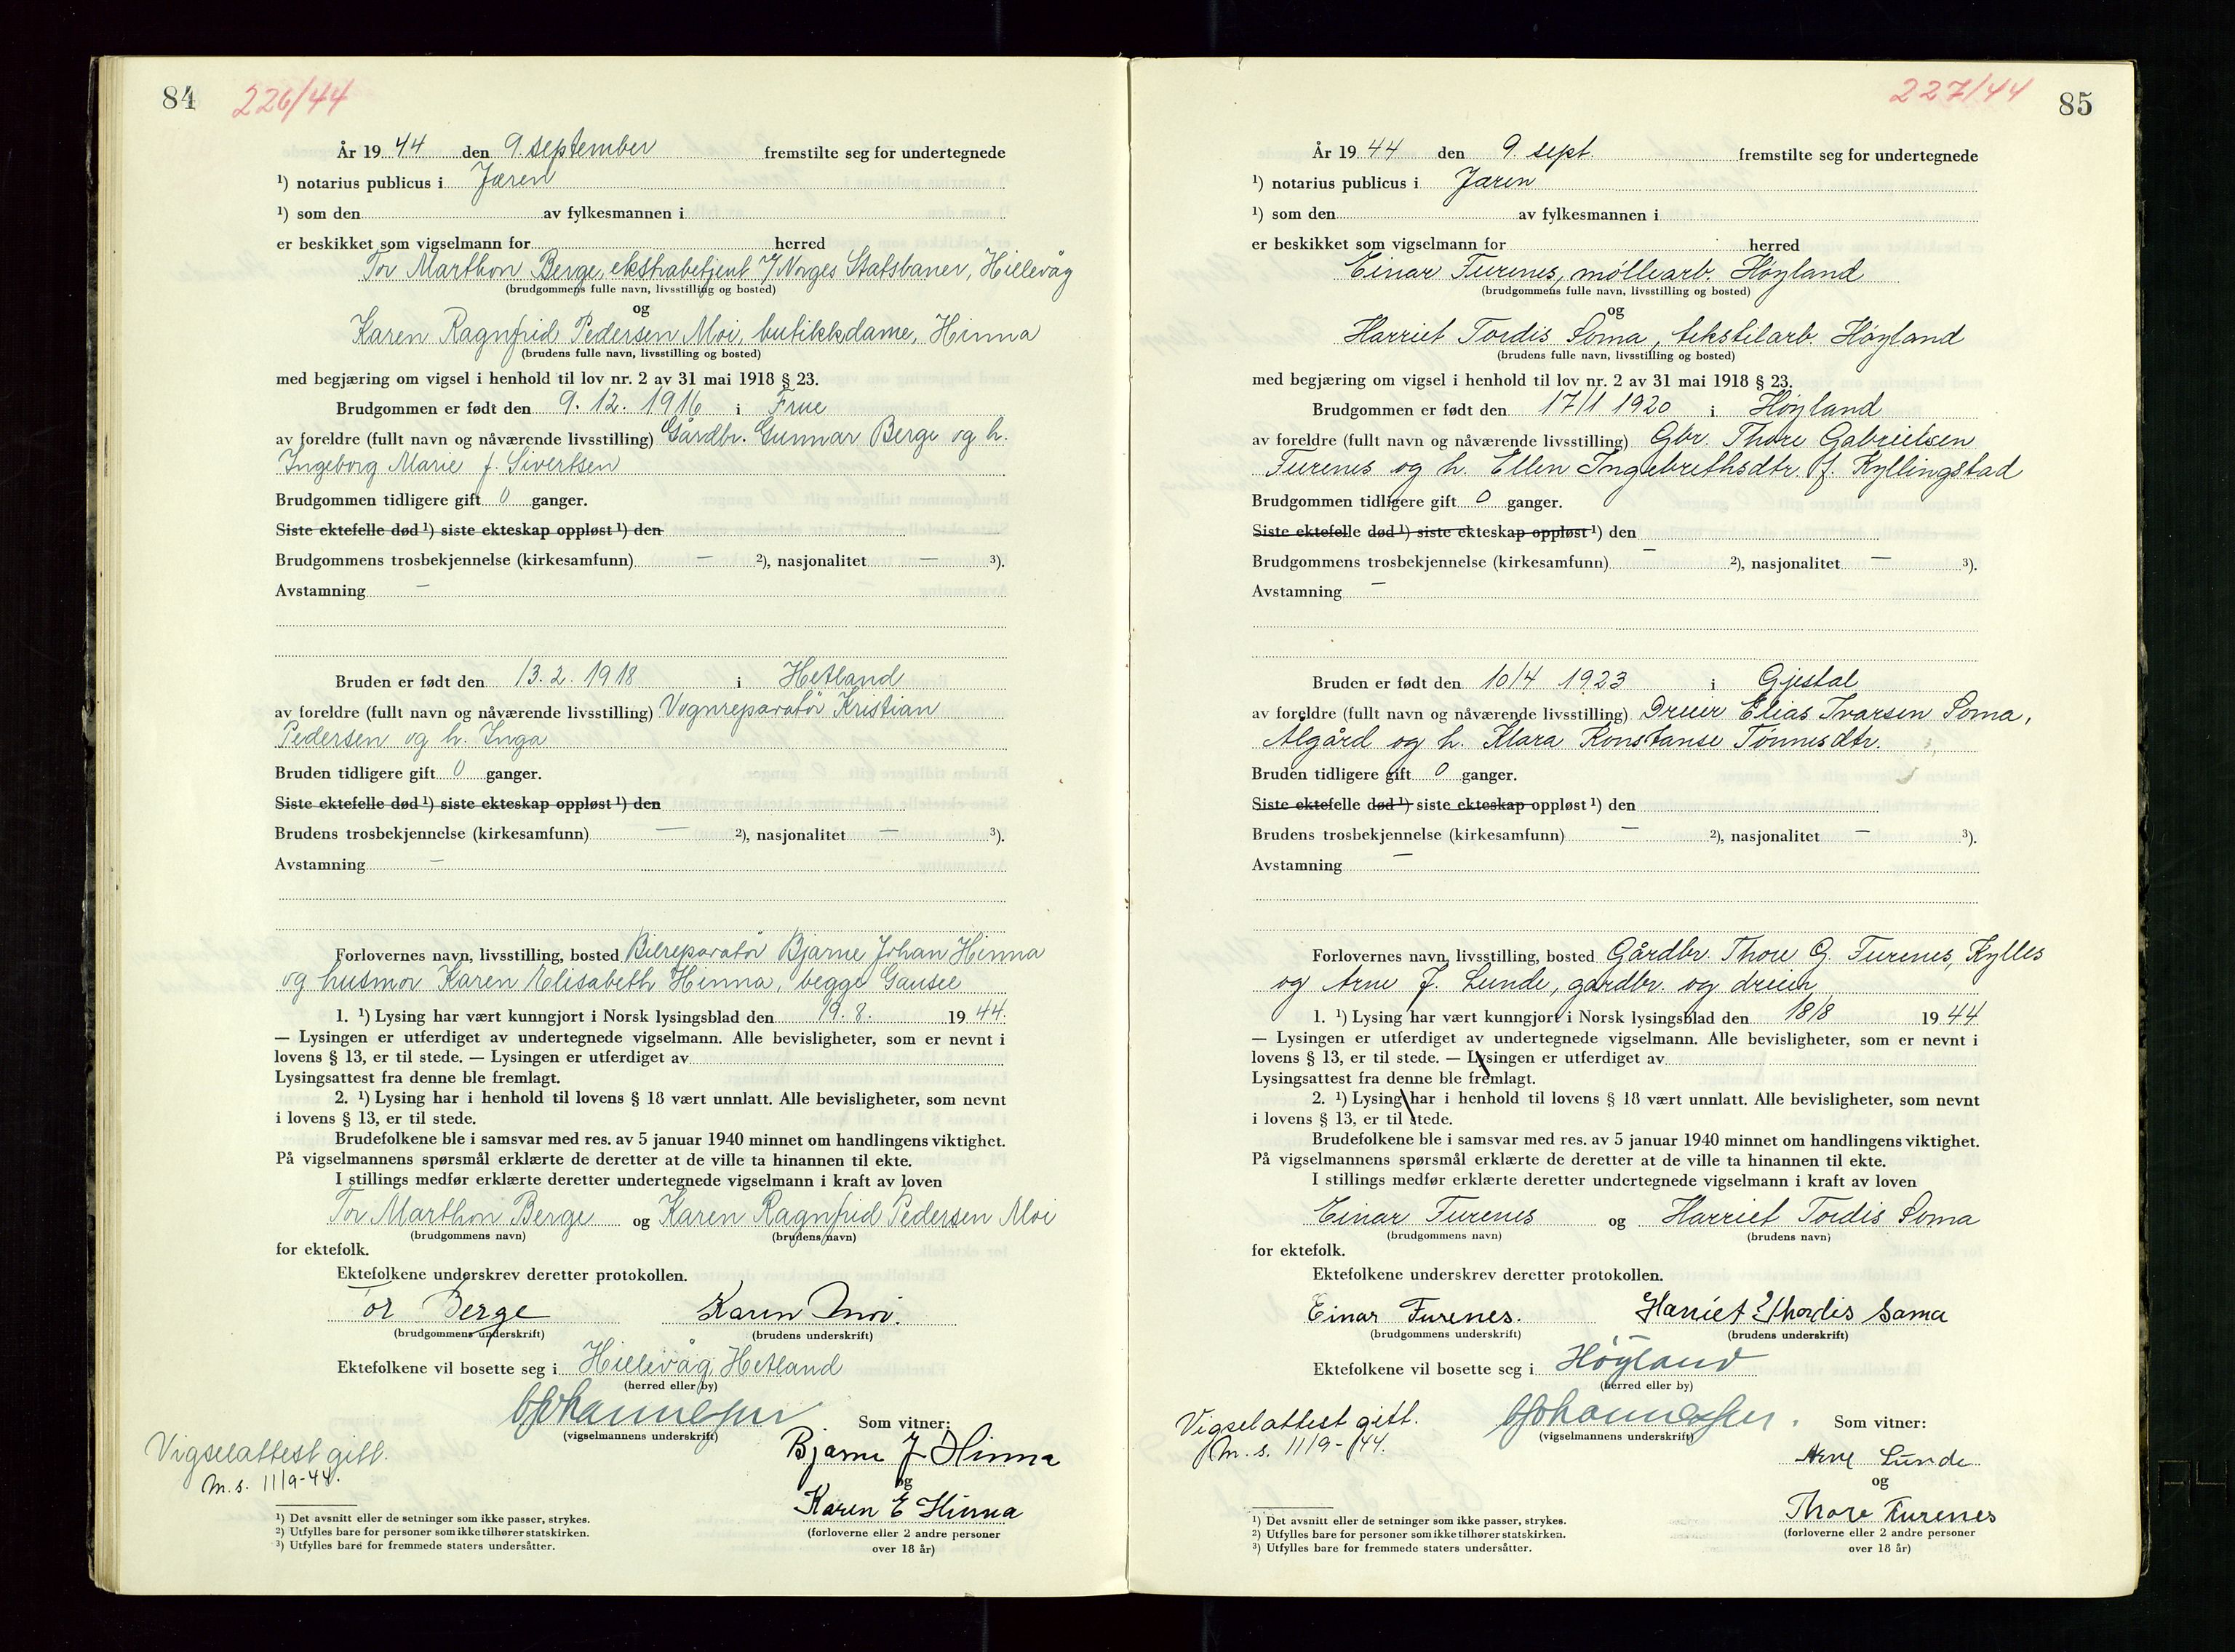 84 226/44
År 19 44 den 9. september fremstilte seg for undertegnede
¹) notarius publicus i Jæren
¹) som den av fylkesmannen i
er beskikket som vigselmann for herred
Tor Marthon Berge, ekstrabetjent v/ Norges Statsbaner, Hillevåg
(brudgommens fulle navn, livsstilling og bosted)
og
Karen Ragnfrid Pedersen Moi, butikkdame, Hinna
(brudens fulle navn, livsstilling og bosted)
med begjæring om vigsel i henhold til lov nr. 2 av 31 mai 1918 § 23.
Brudgommen er født den 9. 12. 1916 i Frue
av foreldre (fullt navn og nåværende livsstilling) Gårdbr. Gunnar Berge og h.
Ingeborg Marie f. Sivertsen
Brudgommen tidligere gift 0 ganger.
Siste ektefelle død ¹) siste ekteskap oppløst ¹) den
Brudgommens trosbekjennelse (kirkesamfunn) — ²), nasjonalitet — ³).
Avstamning —
Bruden er født den 13. 2. 1918 i Hetland
av foreldre (fullt navn og nåværende livsstilling) Vognreparatør Kristian
Pedersen og h. Inga
Bruden tidligere gift 0 ganger.
Siste ektefelle død ¹) siste ekteskap oppløst ¹) den
Brudens trosbekjennelse (kirkesamfunn) — ²), nasjonalitet — ³).
Avstamning —
Forlovernes navn, livsstilling, bosted Bilreparatør Bjarne Johan Hinna
og husmor Karen Elisabeth Hinna, begge Gausel
1. ¹) Lysing har vært kunngjort i Norsk lysingsblad den 19. 8. 19 44.
— Lysingen er utferdiget av undertegnede vigselmann. Alle bevisligheter, som er nevnt i
lovens § 13, er til stede. — Lysingen er utferdiget av
Lysingsattest fra denne ble fremlagt.
2. ¹) Lysing har i henhold til lovens § 18 vært unnlatt. Alle bevisligheter, som nevnt
i lovens § 13, er til stede.
Brudefolkene ble i samsvar med res. av 5 januar 1940 minnet om handlingens viktighet.
På vigselmannens spørsmål erklærte de deretter at de ville ta hinannen til ekte.
I stillings medfør erklærte deretter undertegnede vigselmann i kraft av loven
Tor Marthon Berge og Karen Ragnfrid Pedersen Moi
(brudgommens navn) (brudens navn)
for ektefolk.
Ektefolkene underskrev deretter protokollen.
Tor Berge Karen Moi.
(brudgommens underskrift) (brudens underskrift)
Ektefolkene vil bosette seg i Hillevåg, Hetland
(herred eller by)
Som vitner:
(vigselmannens underskrift)
Bjarne J Hinna
Vigselattest gitt.
M. s. 11/9-44.
og
Karen E Hinna
(forloverne eller 2 andre personer
over 18 år)
¹) Det avsnitt eller de setninger som ikke passer, strykes.
²) Utfylles bare for personer som ikke tilhører statskirken.
³) Utfylles bare for fremmede staters undersåtter.
227/44 85
År 19 44 den 9. sept. fremstilte seg for undertegnede
¹) notarius publicus i Jæren
¹) som den av fylkesmannen i
er beskikket som vigselmann for herred
Einar Furenes, møllearb. Høyland
(brudgommens fulle navn, livsstilling og bosted)
og
Harriet Tordis Soma, tekstilarb. Høyland
(brudens fulle navn, livsstilling og bosted)
med begjæring om vigsel i henhold til lov nr. 2 av 31 mai 1918 § 23.
Brudgommen er født den 17/1 1920 i Høyland
av foreldre (fullt navn og nåværende livsstilling) Gbr. Thore Gabrielsen
Furenes og h. Ellen Ingebrethsdtr. f. Kyllingstad
Brudgommen tidligere gift 0 ganger.
Siste ektefelle død ¹) siste ekteskap oppløst ¹) den
Brudgommens trosbekjennelse (kirkesamfunn) — ²), nasjonalitet — ³).
Avstamning —
Bruden er født den 10/4 1923 i Gjestal
av foreldre (fullt navn og nåværende livsstilling) Dreier Elias Ivarsen Soma,
Ålgård og h. Klara Konstanse Tønnesdtr.
Bruden tidligere gift 0 ganger.
Siste ektefelle død ¹) siste ekteskap oppløst ¹) den
Brudens trosbekjennelse (kirkesamfunn) — ²), nasjonalitet — ³).
Avstamning —
Forlovernes navn, livsstilling, bosted Gårdbr. Thore G. Furenes, Kylles
og Arne J. Lunde, gardbr. og dreier
1. ¹) Lysing har vært kunngjort i Norsk lysingsblad den 18/8 19 44
— Lysingen er utferdiget av undertegnede vigselmann. Alle bevisligheter, som er nevnt i
lovens § 13, er til stede. — Lysingen er utferdiget av
Lysingsattest fra denne ble fremlagt.
2. ¹) Lysing har i henhold til lovens § 18 vært unnlatt. Alle bevisligheter, som nevnt
i lovens § 13, er til stede.
Brudefolkene ble i samsvar med res. av 5 januar 1940 minnet om handlingens viktighet.
På vigselmannens spørsmål erklærte de deretter at de ville ta hinannen til ekte.
I stillings medfør erklærte deretter undertegnede vigselmann i kraft av loven
Einar Furenes og Harriet Tordis Soma
(brudgommens navn) (brudens navn)
for ektefolk.
Ektefolkene underskrev deretter protokollen.
Einar Furenes. Harriet Thordis Soma
(brudgommens underskrift) (brudens underskrift)
Ektefolkene vil bosette seg i Høyland
(herred eller by)
Vigselattest gitt. Som vitner:
(vigselmannens underskrift)
M. s. 11/9-44.
Arne Lunde
og
Thore Furenes
(forloverne eller 2 andre personer
over 18 år)
¹) Det avsnitt eller de setninger som ikke passer, strykes.
²) Utfylles bare for personer som ikke tilhører statskirken.
³) Utfylles bare for fremmede staters undersåtter.